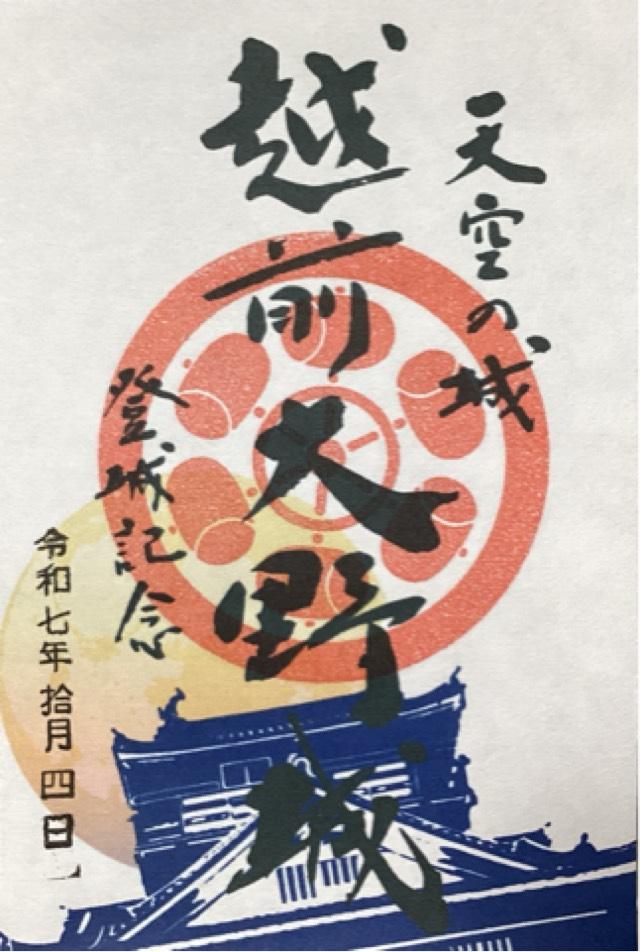 天空の城
越前大野城
登城記念
令和七年拾月四日